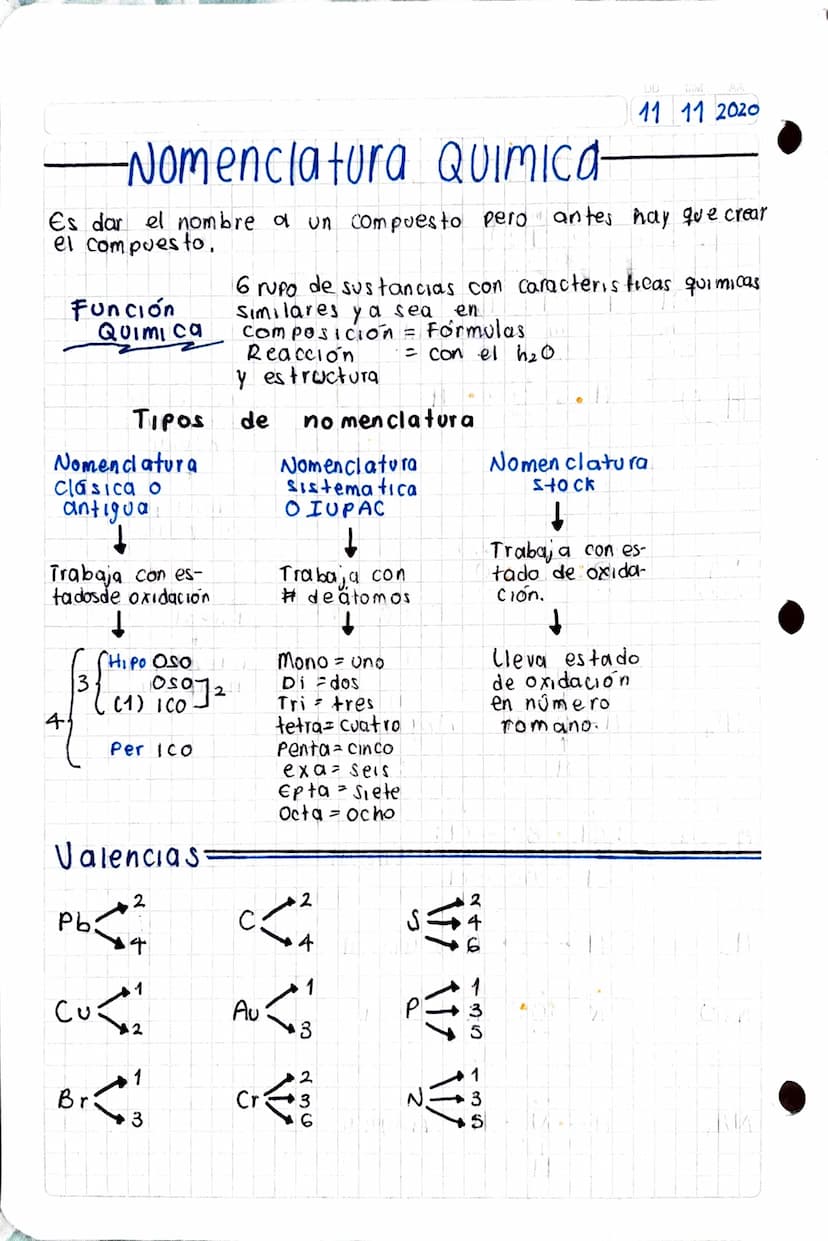 11 11 2020
Nomenclatura Quimica
Es dar el nombre a un compuesto pero antes hay que crear
el compuesto.
Función
Quimica
Grupo de sustancias con caracteristicas quimicas
similares ya sea en
composición = Fórmulas
Reacción = con el h₂O
y estructura
Tipos de nomenclatura
Nomenclatura
Clásica o
antigua
Trabaja con es-
tadosde oxidación
4 3 Hipo oso
oso 2
(1) ico
Per ico
Nomenclatura
sistematica
O IUPAC
Trabaja con
# de átomos
Mono = uno
Di = dos
Tri = tres
tetra = cuatro
penta = cinco
exa = seis
Epta = siete
Octa = ocho
Nomenclatura
stock
Trabaja con es-
tado de oxida-
ción.
Lleva estado
de oxidación
en número
romano.
Valencias
Pb 2 4
C 2 4
S 2 4 6
Cu 1 2
Au 1 3
P 1 3 5
Br 1 3
Cr 2 3 6
N 1 3 5